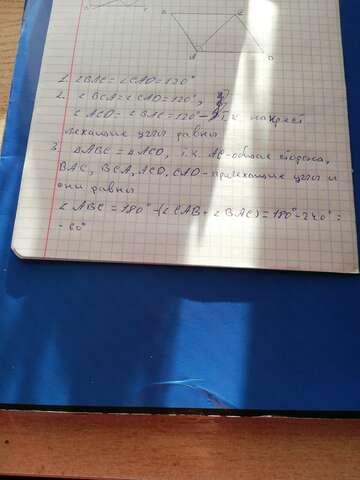 1. ∠BAC = ∠CAD = 130°
2. ∠BCA = ∠CAD = 120°,
∠ACD = ∠BAC = 120° - т.к. накрест
лежащие углы равны
3. △ABC = △ACD, т.к. AC - общая сторона,
BAC, BCA, ACD, CAD - прилежащие углы и
они равны
∠ABC = 180° - (∠CAB + ∠BAC) = 180° - 240° =
- 60°